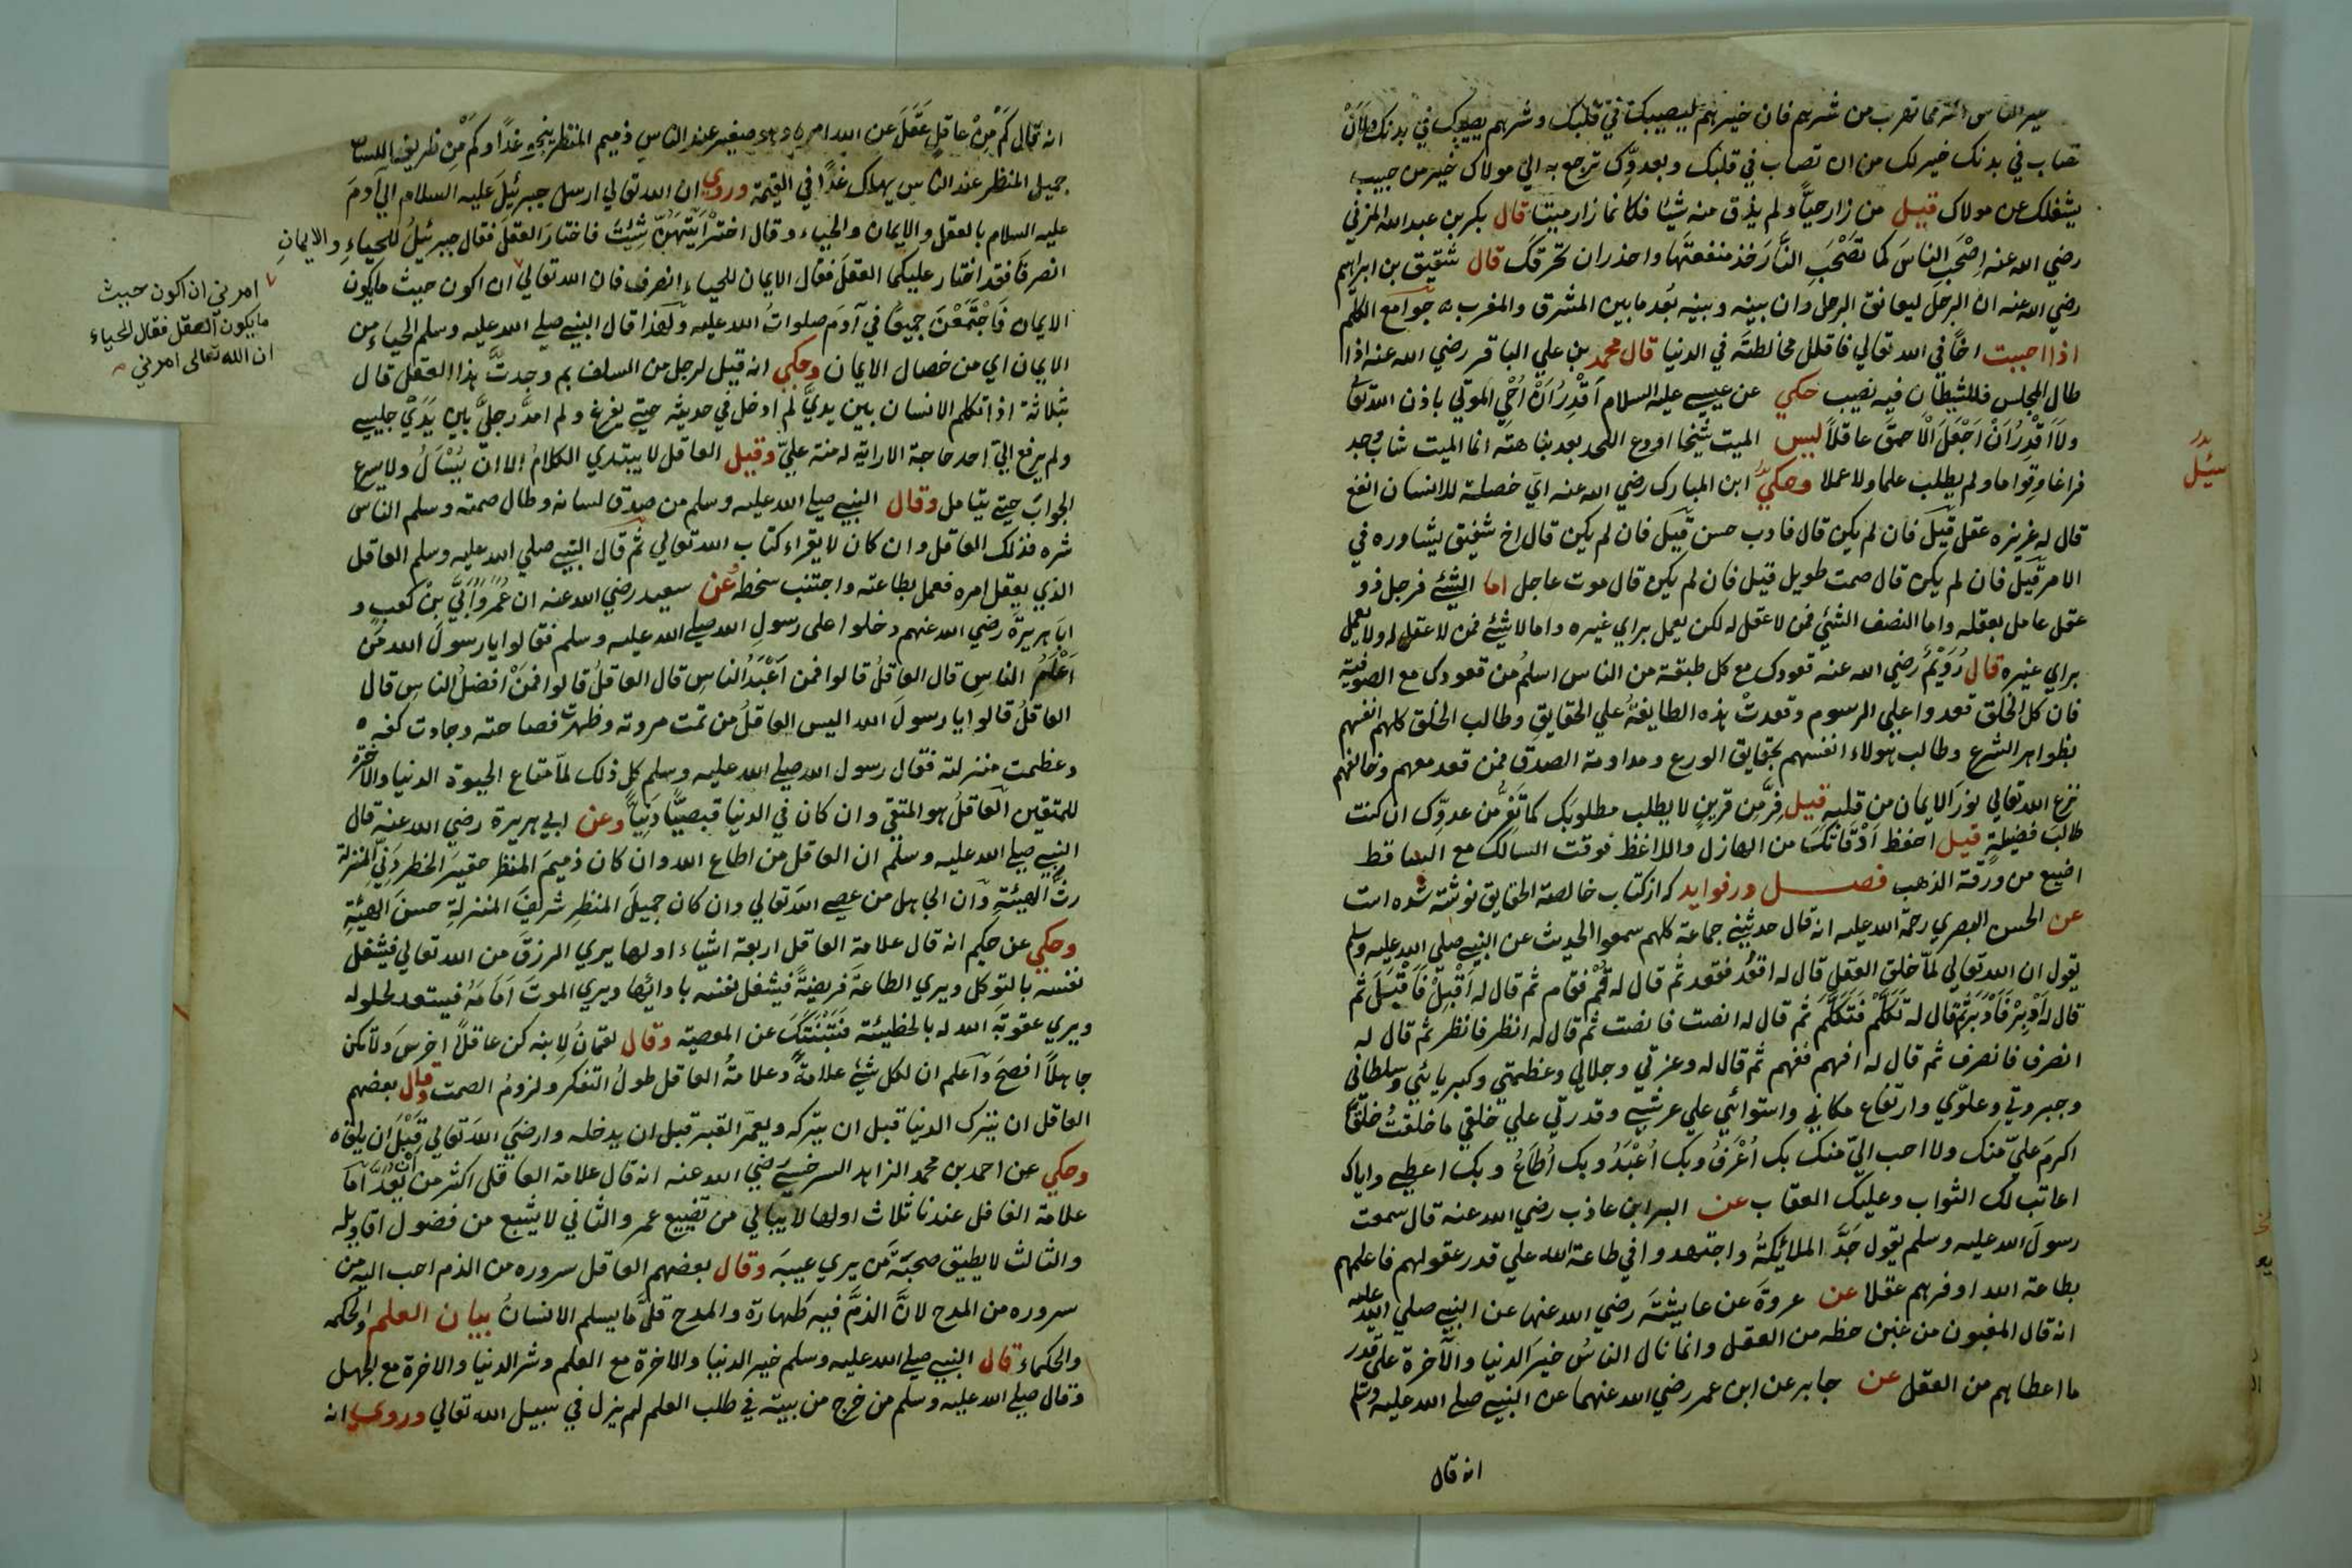 الناس مما تقرب من شرهم فان خيرهم ليصيبك في قلبك وشرهم يصيبك في بدنك ولان
تصاب في بدنك خير لك من ان تصاب في قلبك وبعدوك ترجع به الي مولاك خير من حبيب
يشغلك عن مولاك قيل من زار حيا ولم يذق منه شيئا فكانما زار ميتا قال بكر بن عبد الله المزني
رضي الله عنه اصحب الناس كما تصحب النار خذ منفعتها واحذر ان تحرقك قال شقيق بن ابراهيم
رضي الله عنه ان الرجل ليعانق الرجل وان بينه وبينه بعد ما بين المشرق والمغرب جوامع الكلم
اذا احببت اخا في الله تعالي فاقلل مخالطته في الدنيا قال محمد بن علي الباقر رضي الله عنه اذا
طال المجلس فللشيطان فيه نصيب حكي عن عيسي عليه السلام اقدر ان احي الموتي باذن الله تعالي
ولا اقدر ان اجعل الاحمق عاقلا ليس الميت شيخا اودع اللحد بعد تناهته انما الميت شاب وجد
فراغا وقواما ولم يطلب علما ولا عملا وحكي ابن المبارك رضي الله عنه اي خصلة للانسان انفع
قال له غريزه عقل قيل فان لم يكن قال فادب حسن قيل فان لم يكن قال اخ شفيق يشاوره في
الامر قيل فان لم يكن قال صمت طويل قيل فان لم يكن قال موت عاجل اما الشئ فرجل ذو
عقل عامل بعقله واما النصف الشئ فمن لا عقل له لكن يعمل براي غيره واما لا شئ فمن لا عقل له ولا يعمل
براي غيره قال رويم رضي الله عنه قعودك مع كل طبقة من الناس اسلم من قعودك مع الصوفية
فان كل الخلق قعدوا علي الرسوم وقعدت هذه الطايفة علي الحقايق وطالب الخلق كلهم انفسهم
بظواهر الشرع وطالب هولاء انفسهم بحقايق الورع ومداومة الصدق فمن قعد معهم وخالفهم
نزع الله تعالي نور الايمان من قلبه قيل فر من قرين لا يطلب مطلوبك كما تفر من عدوك ان كنت
طالب فضيلة قيل احفظ اوقاتك من الهازل والاغظ فوقت السالك مع الساقط
اضيع من ورقة الذهب فصل در فوايد كه از كتاب خالصة الحقايق نوشته شده است
عن الحسن البصري رحمة الله عليه انه قال حدثني جماعة كلهم سمعوا الحديث عن النبي صلي الله عليه وسلم
يقول ان الله تعالي لما خلق العقل قال له اقعد فقعد ثم قال له قم فقام ثم قال له اقبل فاقبل ثم
قال له ادبر فادبر ثم قال له تكلم فتكلم ثم قال له انصت فانصت ثم قال له انظر فانظر ثم قال له
انصرف فانصرف ثم قال له افهم ففهم ثم قال له وعزتي وجلالي وعظمتي وكبريائي وسلطاني
وجبروتي وعلوي وارتفاع مكاني واستوائي علي عرشي وقدرتي علي خلقي ما خلقت خلقا
اكرم علي منك ولا احب الي منك بك اعرف وبك اعبد وبك اطاع وبك اعطي واياك
اعاتب لك الثواب وعليك العقاب عن البراء ابن عاذب رضي الله عنه قال سمعت
رسول الله عليه وسلم يقول جد الملائكة واجتهدوا في طاعة الله علي قدر عقولهم فاعلمهم
بطاعة الله اوفرهم عقلا عن عروة عن عايشة رضي الله عنها عن النبي صلي الله عليه
انه قال المغبون من غبن حظه من العقل وانما نال الناس خير الدنيا والآخرة علي قدر
ما اعطاهم من العقل عن جابر عن ابن عمر رضي الله عنهما عن النبي صلي الله عليه وسلم
انه قال
سئل
انه قال كم من عاقل عقل عن الله امره وهو صغير عند الناس ذميم المنظر ينجو غدا وكم من ظريف اللسان
جميل المنظر عند الناس يهلك غدا في القيمة وروي ان الله تعالي ارسل جبرئيل عليه السلام الي آدم
عليه السلام بالعقل والايمان والحياء وقال اختر ايتهن شئت فاختار العقل فقال جبرئيل للحياء والايمان
انصرفا فقد اختار عليكما العقل فقال الايمان للحياء انصرف فان الله تعالي ان اكون حيث ما يكون
الايمان فاجتمعن جميعا في آدم صلوات الله عليه ولهذا قال النبي صلي الله عليه وسلم الحياء من
الايمان اي من خصال الايمان وحكي انه قيل لرجل من السلف بم وجدت هذا العقل قال
بثلاثة اذا تكلم الانسان بين يدي لم ادخل في حديثه حتي يفرغ ولم امد رجلي بين يدي جليسي
ولم يرفع الي احد حاجة الا رايت له منة علي وقيل العاقل لا يبتدي الكلام الا ان يسال ولا يسرع
الجواب حتي يتامل وقال النبي صلي الله عليه وسلم من صدق لسانه وطال صمته وسلم الناس
شره فذلك العاقل وان كان لا يقراء كتاب الله تعالي ثم قال النبي صلي الله عليه وسلم العاقل
الذي يعقل امره فعمل بطاعته واجتنب سخطه عن سعيد رضي الله عنه ان عمر وابي بن كعب و
ابا هريرة رضي الله عنهم دخلوا علي رسول الله صلي الله عليه وسلم فقالوا يا رسول الله من
اعلم الناس قال العاقل قالوا فمن اعبد الناس قال العاقل قالوا فمن افضل الناس قال
العاقل قالوا يا رسول الله اليس العاقل من تمت مروته وظهرت فصاحته وجادت كفه
وعظمت منزلته فقال رسول الله صلي الله عليه وسلم كل ذلك لما متاع الحيوة الدنيا والآخرة
للمتقين العاقل هو المتقي وان كان في الدنيا قبصيا دنيا وعن ابي هريرة رضي الله عنه قال
النبي صلي الله عليه وسلم ان العاقل من اطاع الله وان كان ذميم المنظر حقير الخطر دني المنزلة
رث الهيئة وان الجاهل من عصي الله تعالي وان كان جميل المنظر شريف المنزلة حسن الهيئة
وحكي عن حكيم انه قال علامة العاقل اربعة اشياء اولها يري الرزق من الله تعالي فيشغل
نفسه بالتوكل ويري الطاعة فريضة فيشغل نفسه بادائها ويري الموت امامه فيستعد لحلوله
ويري عقوبة الله له بالخطيئة عن المعصية وقال لقمان لابنه كن عاقلا اخرس ولا تكن
جاهلا افصح واعلم ان لكل شئ علامة وعلامة العاقل طول التفكر ولزوم الصمت وقال بعضهم
العاقل ان يترك الدنيا قبل ان يتركه ويعمر القبر قبل ان يدخله وارضي الله تعالي قبل ان يلقاه
وحكي عن احمد بن محمد الزاهد السرخسي رضي الله عنه انه قال علامة العاقل اكثر من ان يعد اما
علامة الغافل عندنا ثلاث اولها لا يبالي من تضييع عمر والثاني لا يشبع من فضول اقاويله
والثالث لا يطيق صحبة من يري عيبه وقال بعضهم العاقل سروره من الذم احب اليه من
سروره من المدح لان الذم فيه طهارة والمدح قل ما يسلم الانسان بيان العلم والحكمه
والحكماء قال النبي صلي الله عليه وسلم خير الدنيا والاخرة مع العلم وشر الدنيا والاخرة مع الجهل
وقال صلي الله عليه وسلم من خرج من بيته في طلب العلم لم يزل في سبيل الله تعالي وروي انه
امرني ان اكون حيث
ما يكون العقل فقال الحياء
ان الله تعالى امرني